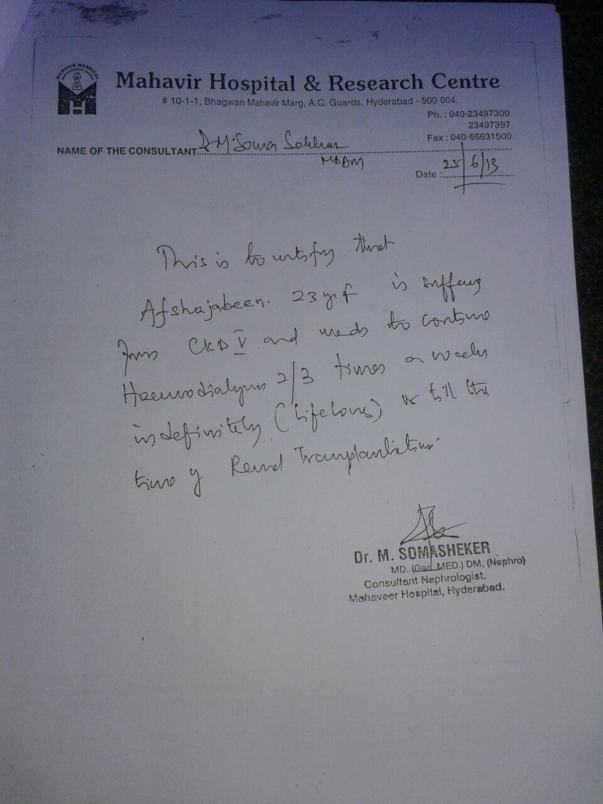 MAHAVIR HOSPITAL
Mahavir Hospital & Research Centre
# 10-1-1, Bhagwan Mahavir Marg, A.C. Guards, Hyderabad - 500 004.
Ph. : 040-23497300
23497397
Fax : 040-66631500
NAME OF THE CONSULTANT Dr M. Soma Sekhar
MD DM
Date : 25/6/13
This is to certify that
Afshajabeen. 23 yr f is suffering
from CKD V and needs to continue
Haemodialysis 2/3 times a week
indefinitely (Lifelong) or till the
time of Renal Transplantation.
Dr. M. SOMASHEKER
MD. (Gen. MED.) DM. (Nephro)
Consultant Nephrologist.
Mahaveer Hospital, Hyderabad.